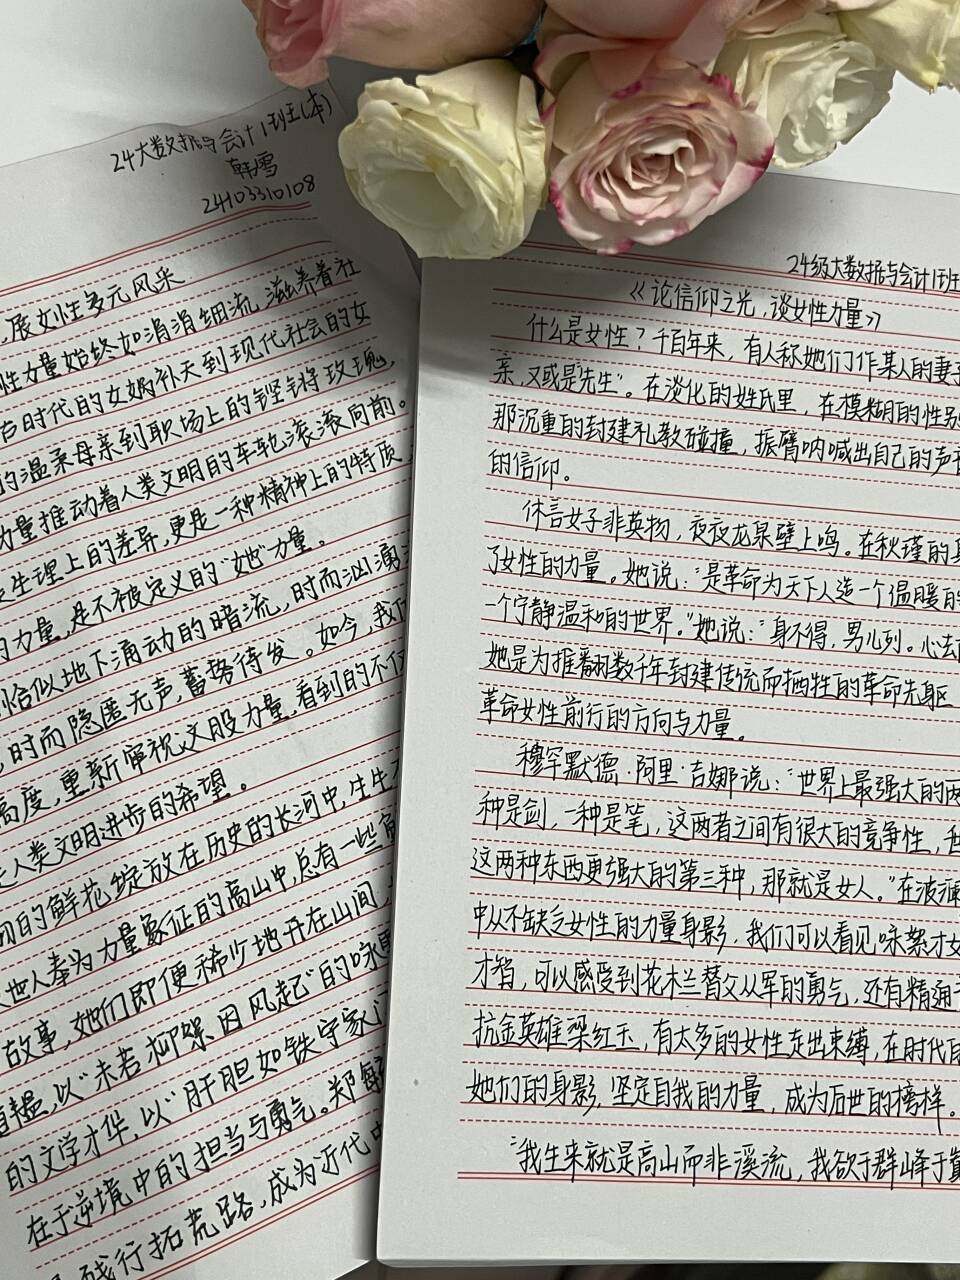 24大数据与会计1班(本)
韩雪
24103310108
,展女性多元风采
性力量始终如涓涓细流,滋养着社
古时代的女娲补天到现代社会的女
的温柔母亲到职场上的铿锵玫瑰,
力量推动着人类文明的车轮滚滚向前。
生理上的差异,更是一种精神上的特质,
的力量,是不被定义的“她”力量。
恰似地下涌动的暗流,时而汹涌
,时而隐匿无声,蓄势待发。如今,我们
高度,重新审视这股力量,看到的不仅
人类文明进步的希望。
的鲜花绽放在历史的长河中,生生不
世人奉为力量象征的高山中,总有一些
故事,她们即便稀少地开在山间,
道韫,以“未若柳絮因风起”的咏
的文学才华,以“肝胆如铁守家
在于逆境中的担当与勇气。郑毓
践行拓荒路,成为近代中
24级大数据与会计1班
《论信仰之光,谈女性力量》
什么是女性?千百年来,有人称她们作某人的妻子
亲,又或是“先生”。在淡化的姓氏里,在模糊的性别
那沉重的封建礼教碰撞,振臂呐喊出自己的声音
的信仰。
休言女子非英物,夜夜龙泉壁上鸣。在秋瑾的身
了女性的力量。她说:“是革命为天下人造一个温暖的
一个宁静温和的世界。”她说:“身不得,男儿列。心去
她是为推翻数千年封建传统而牺牲的革命先驱
革命女性前行的方向与力量。
穆罕默德·阿里·吉娜说:“世界上最强大的两
种是剑,一种是笔,这两者之间有很大的竞争性,但
这两种东西更强大的第三种,那就是女人。”在波澜
中从不缺乏女性的力量身影,我们可以看见咏絮才女
才智,可以感受到花木兰替父从军的勇气,还有精通
抗金英雄梁红玉,有太多的女性走出束缚,在时代的
她们的身影,坚定自我的力量,成为后世的榜样。
“我生来就是高山而非溪流,我欲于群峰于巅